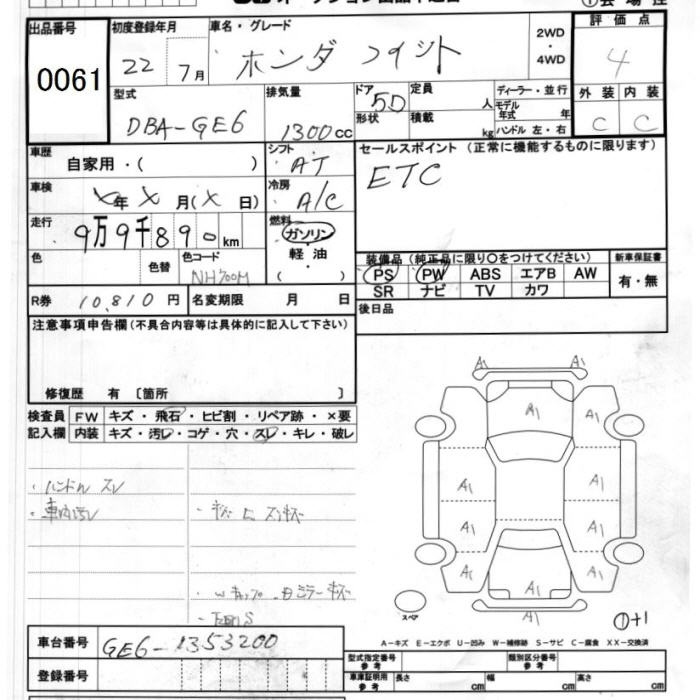 出品番号 0061
初度登録年月 22 7月
車名・グレード ホンダ フィット
2WD ・ 4WD
評価点 4
外装 内装
C C
型式 DBA-GE6
排気量 1300cc
ドア 5D
形状
定員 人
積載 kg
ディーラー・並行
モデル年式 年
ハンドル 左・右
車歴 自家用・( )
シフト AT
セールスポイント (正常に機能するものに限ります)
ETC
車検 X年 X 月(X 日)
冷房 A/C
走行 9万9千890km
燃料 ガソリン ・ 軽油 ・ ( )
色 色替 色コード NH700M
装備品 (純正品に限り○をつけてください)
PS PW ABS エアB AW
SR ナビ TV カワ
新車保証書 有・無
R券 10,810円 名変期限 月 日
後日品
注意事項申告欄 (不具合内容等は具体的に記入して下さい)
修復歴 有 〔箇所 〕
検査員記入欄
FW キズ・飛石・ヒビ割・リペア跡・×要
内装 キズ・汚レ・コゲ・穴・スレ・キレ・破レ
・ハンドル スレ
・車内汚レ
A1 A1
A1 A1
A1 A1
A1 A1
A1 A1 A1
A1
スペア
①+1
車台番号 GE6-1353200
登録番号
A-キズ E-エクボ U-凹み W-補修跡 S-サビ C-腐食 XX-交換済
型式指定番号 参考 類別区分番号 参考
車庫証明用 参考 長さ cm 幅 cm 高さ cm